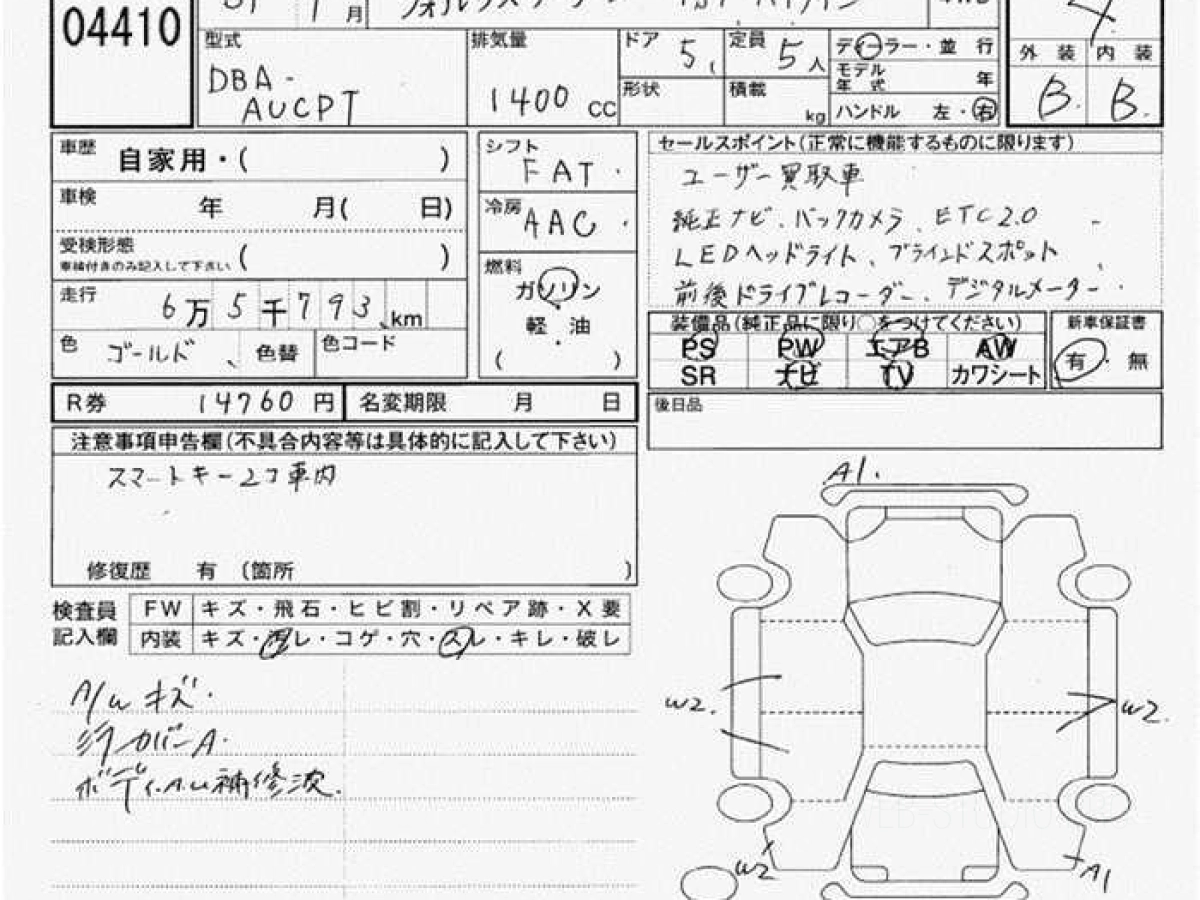 04410
月
型式
DBA-
AUCPT
排気量
1400 cc
ドア 5
定員 5人
形状
積載 kg
ディーラー・並行
モデル年式 年
ハンドル 左・右
外装 内装
B. B.
車歴 自家用・( )
車検 年 月( 日)
受検形態
車検付きのみ記入して下さい ( )
走行 6万5千793km
色 ゴールド 色替 色コード
シフト
FAT
冷房
AAC
燃料
ガソリン
軽・油
( )
セールスポイント(正常に機能するものに限ります)
ユーザー買取車
純正ナビ、バックカメラ、ETC2.0
LEDヘッドライト、ブラインドスポット
前後ドライブレコーダー、デジタルメーター
装備品(純正品に限り○をつけてください)
PS PW エアB AW
SR ナビ TV カワシート
新車保証書
有・無
R券 14760円 名変期限 月 日
後日品
注意事項申告欄(不具合内容等は具体的に記入して下さい)
スマートキー2コ車内
修復歴 有 (箇所 )
検査員記入欄
FW キズ・飛石・ヒビ割・リペア跡・X要
内装 キズ・汚レ・コゲ・穴・スレ・キレ・破レ
A/W キズ.
ミラーカバーA.
ボディA.U補修波.
A1.
W2.
W2.
W2
A1